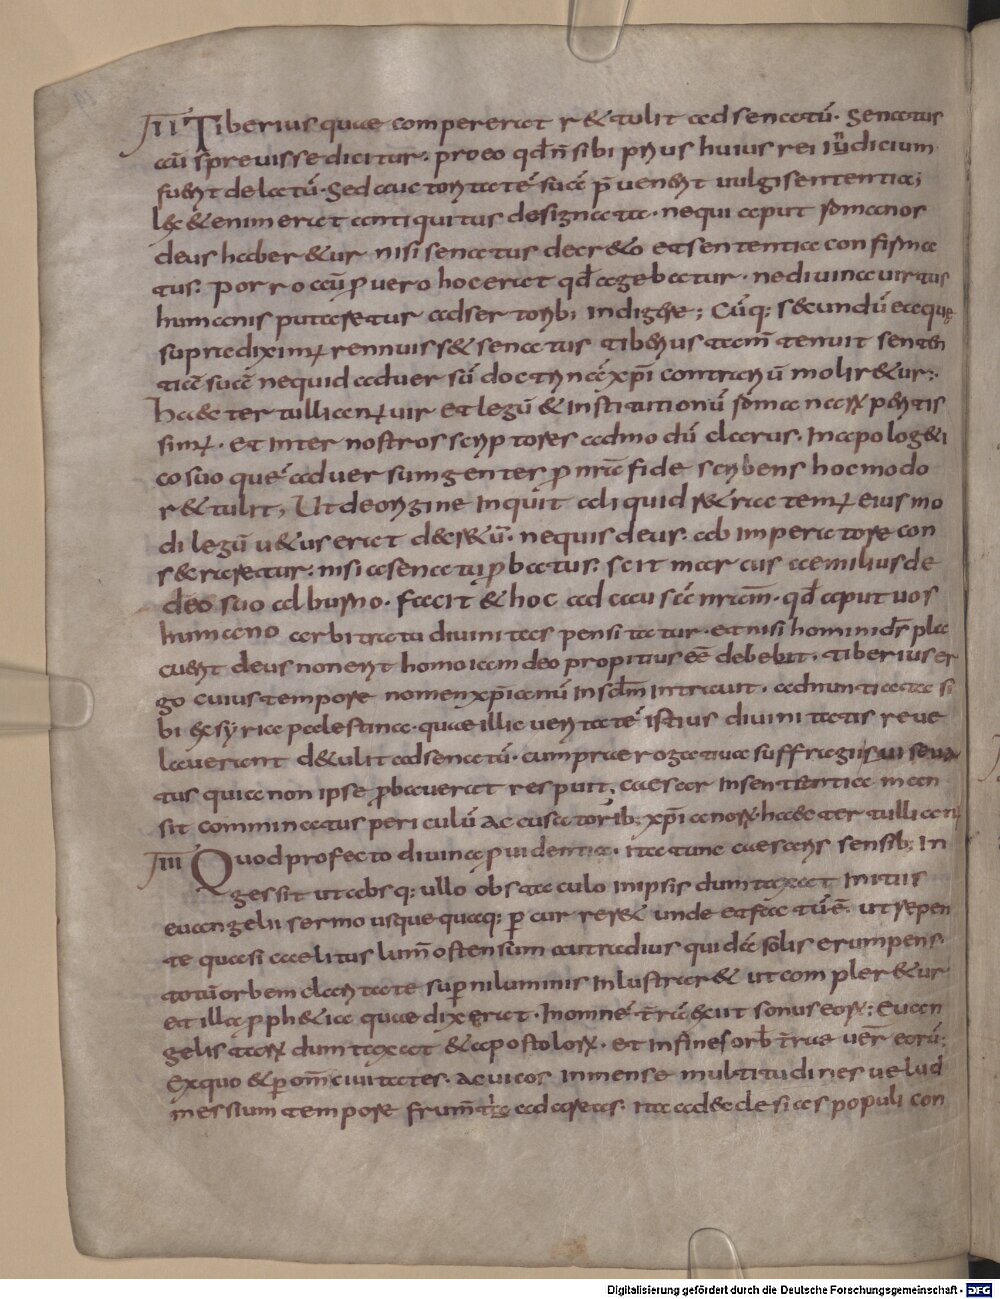 III Tiberius quae compererat r&tulit adsenatū. Senatus
aū sprevisse dicitur. pro eo qd n̄ sibi prius huius rei iudicium
fuerit delatū. Sed auctoritatē suā p̄venerit vulgi sententia;
h̨c &enim erat antiquitus designata. nequi aput romanos
deus haber&ur nisi senatus decr&o et sententia confirma
tus. Porro aū ꝑ vero hoc erat qd̄ agebatur. ne divina virtus
humanis putar&ur adsertorib; indigere; Cūq; secundū ea quę
supra diximꝰ rennuiss& senatus tiberius tam̄ tenuit senten
tiā suā nequid adversū doctrinā xp̄i contrariū molir&ur;
haec tertullianꝰ vir et legū & institutionū romanarꝝ peritis
simꝰ. et inter nostros scriptores admodū clarus. In apolog&i
co suo quē adversum gentes ꝓ nr̄a fide scribens hoc modo
r&tulit; Ut de origine inquit aliquid r&ractemꝰ eius mo
di legū v&us erat decr&ū. nequis deus. ab imperatore con
s&raretur. nisi a senatu ꝓbatus. scit marcus aemilius de
deo suo alburno. facit & hoc ad causā nr̄am. qd̄ aput vos
humano arbitratu divinitas pensitatur. et nisi homini ds̄ pla
cuerit deus non erit homo iam deo propitius eē debebit. tiberius er
go cuius tempore nomen xp̄ianū in sc̄lm intravit. adnuntiata si
bi ex syria palestina. quae illic veritatē istius divinitatis reve
laverant d&ulit ad senatū. cum praerogativa suffragii sui sena
tus quia non ipse ꝓbaverat respuit, caesar in sententia man
sit comminatus periculū accusatorib; xp̄ianorꝝ. haec tertullianꝰ
IIII Quod profecto divina ꝓvidentia. ita tunc caesaris sensib; in
gessit ut absq; ullo obstaculo in ipsis dumtaxat initiis
evangelii sermo usque quaq; ꝑcurrer&. unde et factū ē. ut repen
te quasi caelitus lum̄ ostensum aut radius quidā solis erumpens
totū orbem claritate superni luminis inlustrar& ut compler&ur
et illa ꝓph&ia quae dixerat. In omnē t̄rā exiit sonus eorꝝ; Evan
gelistarꝝ dumtaxat & apostolorꝝ. et in fines orb̄ t̄rae verb̄ eorū;
Ex quo & ꝑ om̄s civitates. ac vicos inmense multitudines velud
messium tempore frum̄ta ad areas. ita ad aecclesias populi con
Digitalisierung gefördert durch die Deutsche Forschungsgemeinschaft - DFG